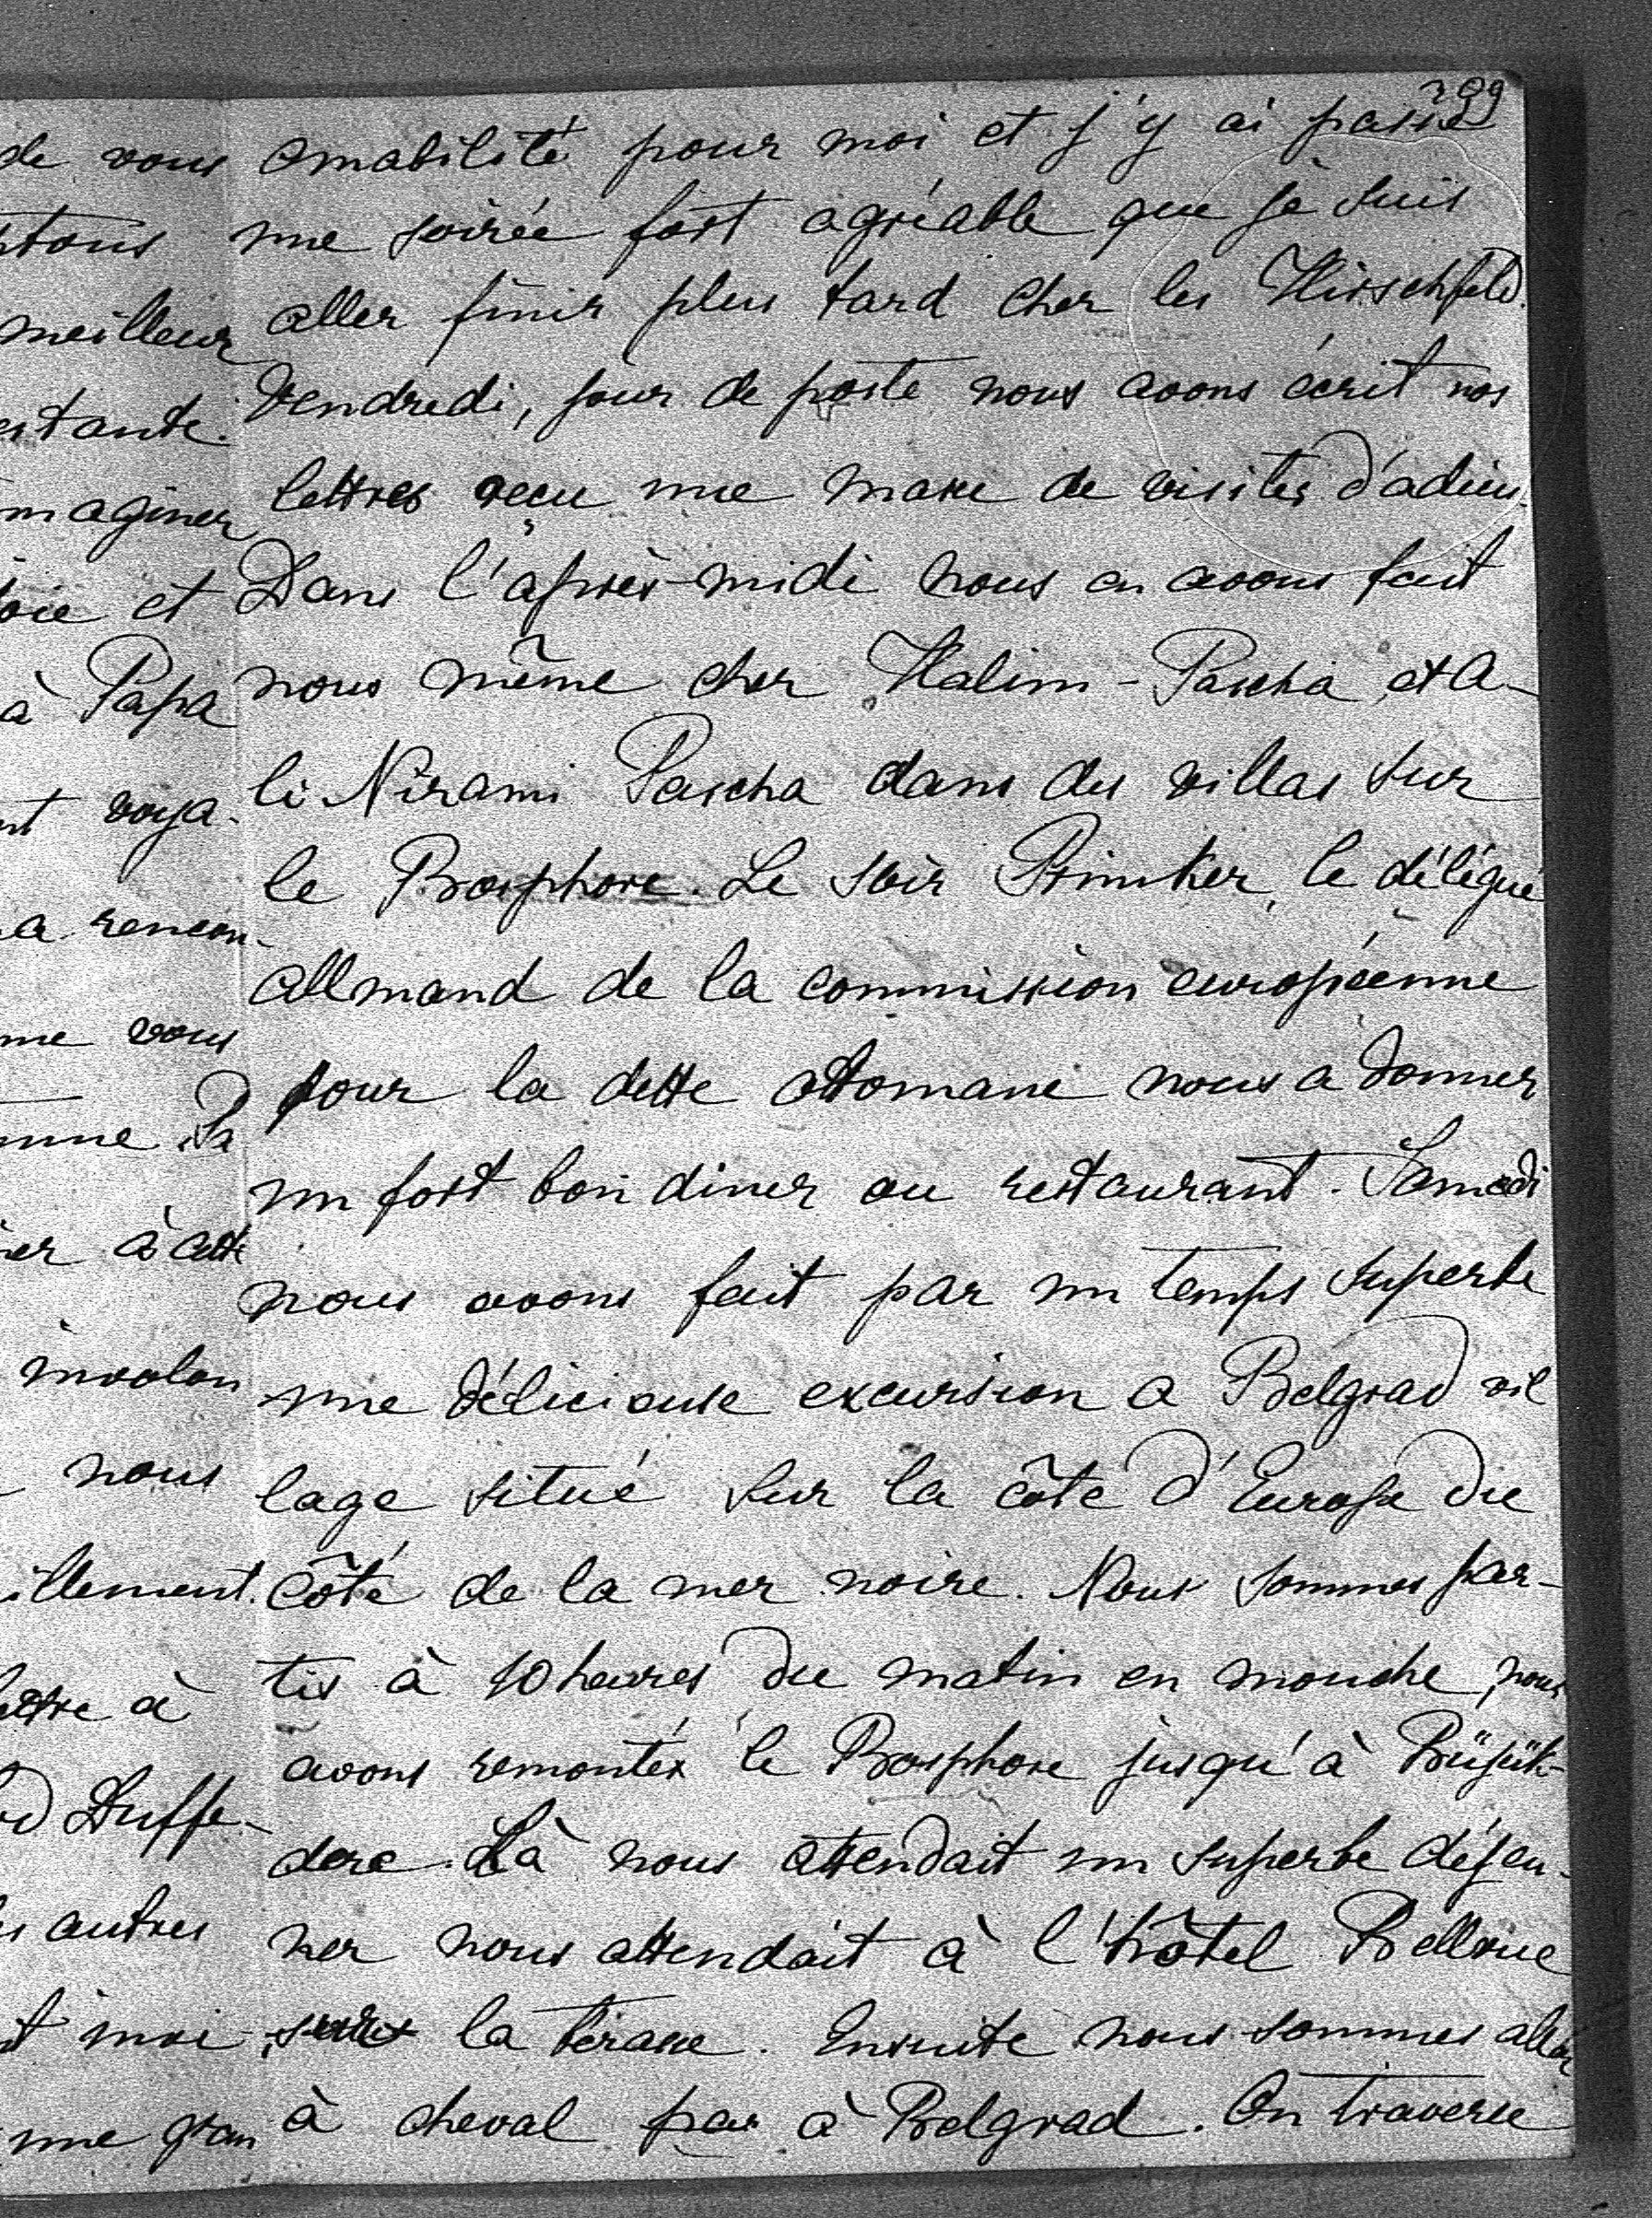 299
amabilité pour moi et j'y ai passé
une soirée fort agréable que je suis
aller finir plus tard chez les Hirschfeld.
Vendredi, jour de poste nous avons écrit nos
lettres reçu une masse de visites d'adieu.
Dans l'après-midi nous en avons fait
nous même chez Halim-Pascha et A-
li Nizami Pascha dans des villas sur
le Bosphore. Le soir Primker, le délégué
allmand de la commission européenne
pour la dette ottomane nous a donner
un fort bon diner au restaurant. Samedi
nous avons fait par un temps superbe
une délicieuse excursion a Belgrad vil
lage situé sur la côte d'Europe du
côté de la mer noire. Nous sommes par-
tis à 10 heures du matin en mouche, nous
avons remontés le Bosphore jusqu'à Büjük-
dere. Là nous attendait un superbe déjeu-
ner nous attendait à l'hôtel Bellvue
sur la térasse. Ensuite nous sommes aller
à cheval par à Belgrad. On traverse
de vous
meilleur
à Papa
voya-
rencon-
vous
à cette
nous
à
Duffe-
autres